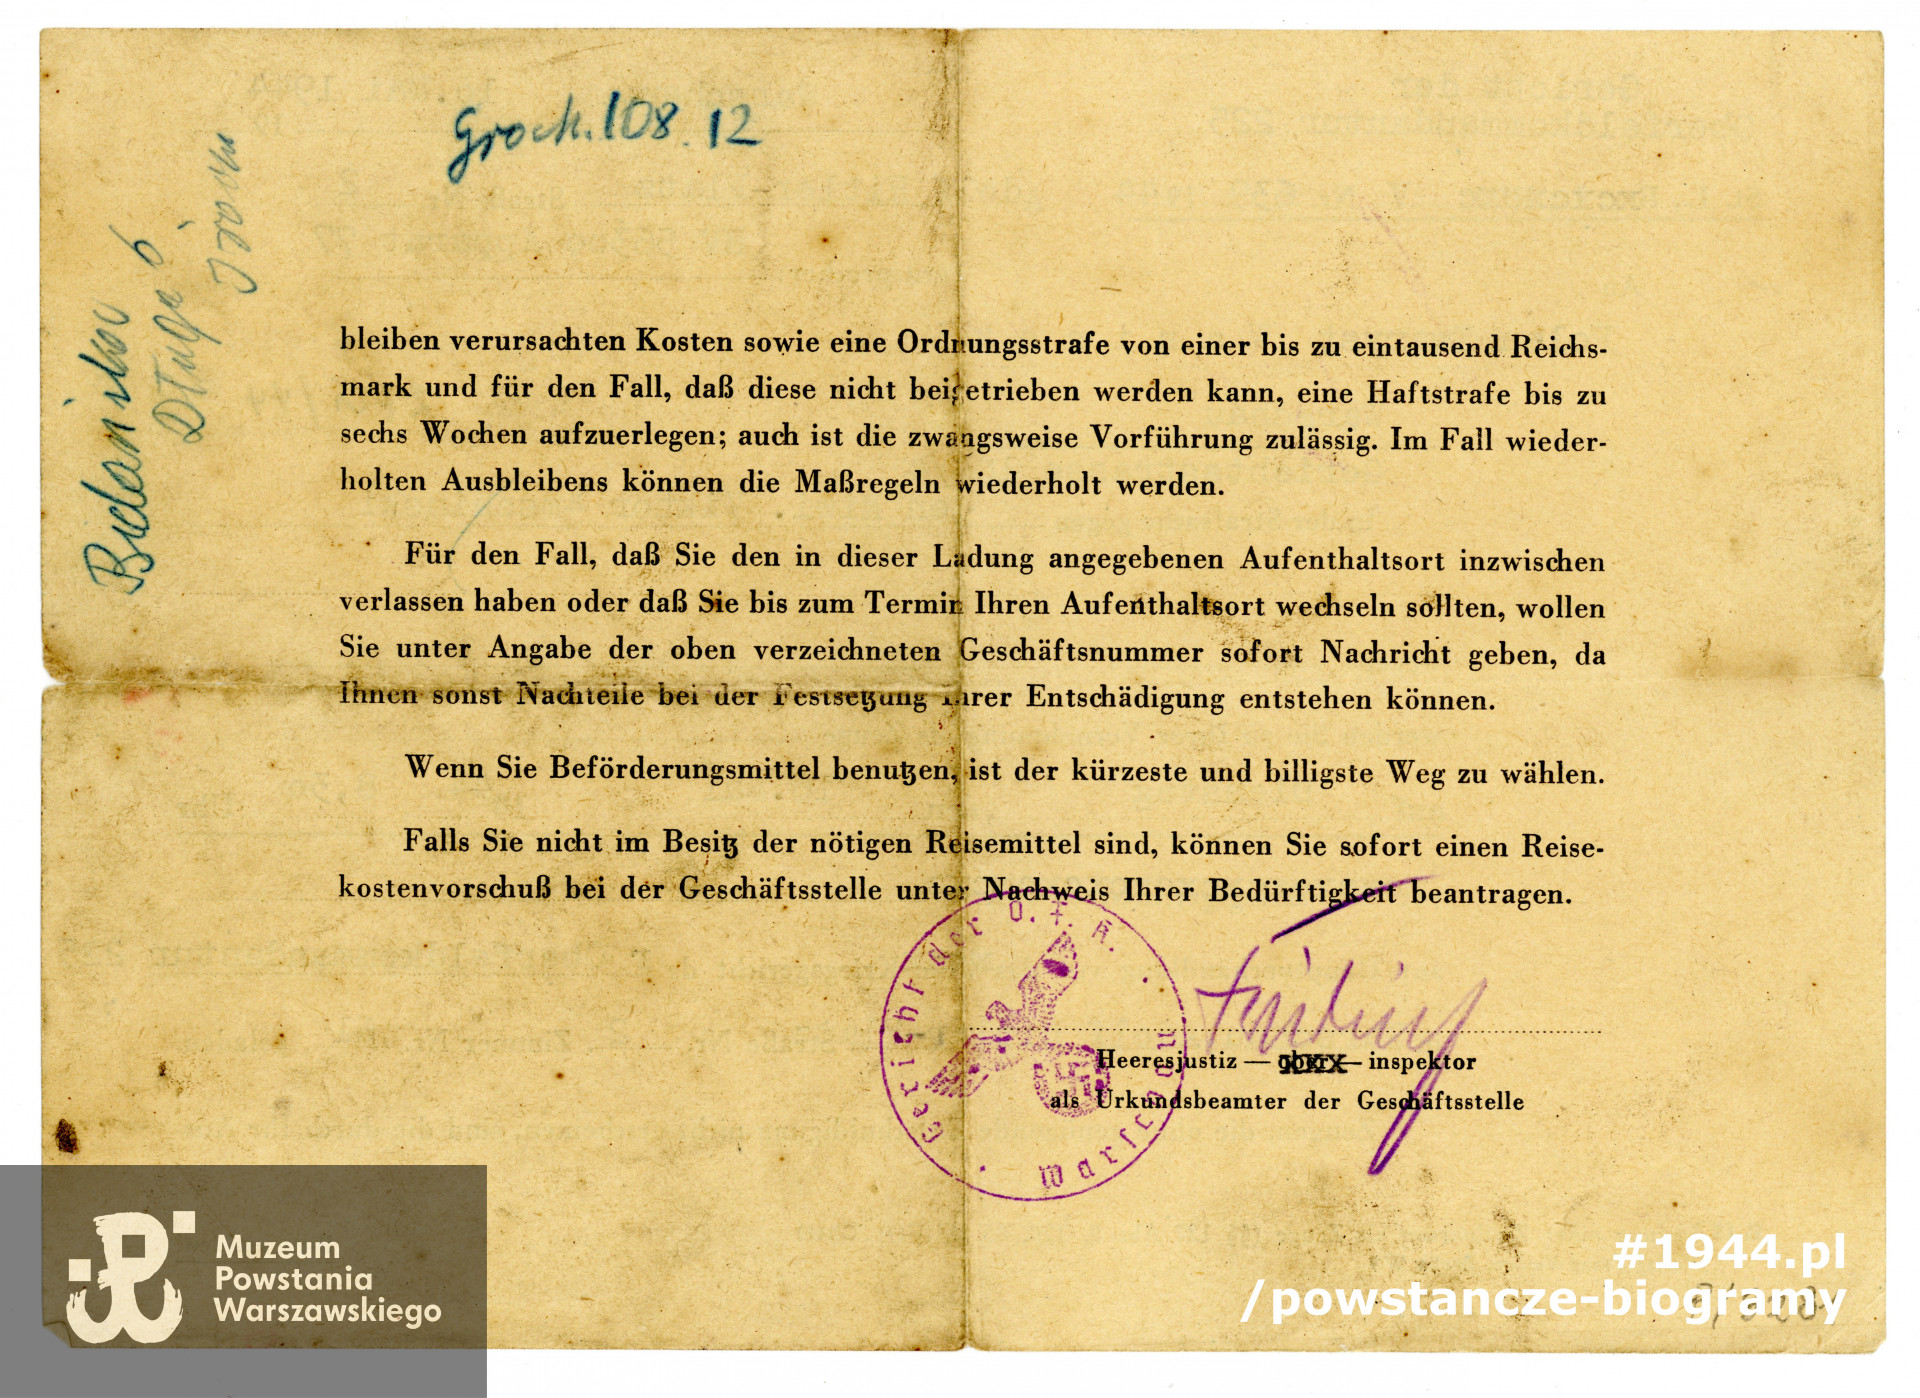 Groch. 108. 12
Bielańska
Długa 6
bleiben verursachten Kosten sowie eine Ordnungsstrafe von einer bis zu eintausend Reichs-
mark und für den Fall, daß diese nicht beigetrieben werden kann, eine Haftstrafe bis zu
sechs Wochen aufzuerlegen; auch ist die zwangsweise Vorführung zulässig. Im Fall wieder-
holten Ausbleibens können die Maßregeln wiederholt werden.
Für den Fall, daß Sie den in dieser Ladung angegebenen Aufenthaltsort inzwischen
verlassen haben oder daß Sie bis zum Termin Ihren Aufenthaltsort wechseln sollten, wollen
Sie unter Angabe der oben verzeichneten Geschäftsnummer sofort Nachricht geben, da
Ihnen sonst Nachteile bei der Festsetzung Ihrer Entschädigung entstehen können.
Wenn Sie Beförderungsmittel benutzen, ist der kürzeste und billigste Weg zu wählen.
Falls Sie nicht im Besitz der nötigen Reisemittel sind, können Sie sofort einen Reise-
kostenvorschuß bei der Geschäftsstelle unter Nachweis Ihrer Bedürftigkeit beantragen.
Gericht der O.F.K. Warschau
Heeresjustiz — ober — inspektor
als Urkundsbeamter der Geschäftsstelle
Muzeum
Powstania
Warszawskiego
#1944.pl
/powstancze-biogramy